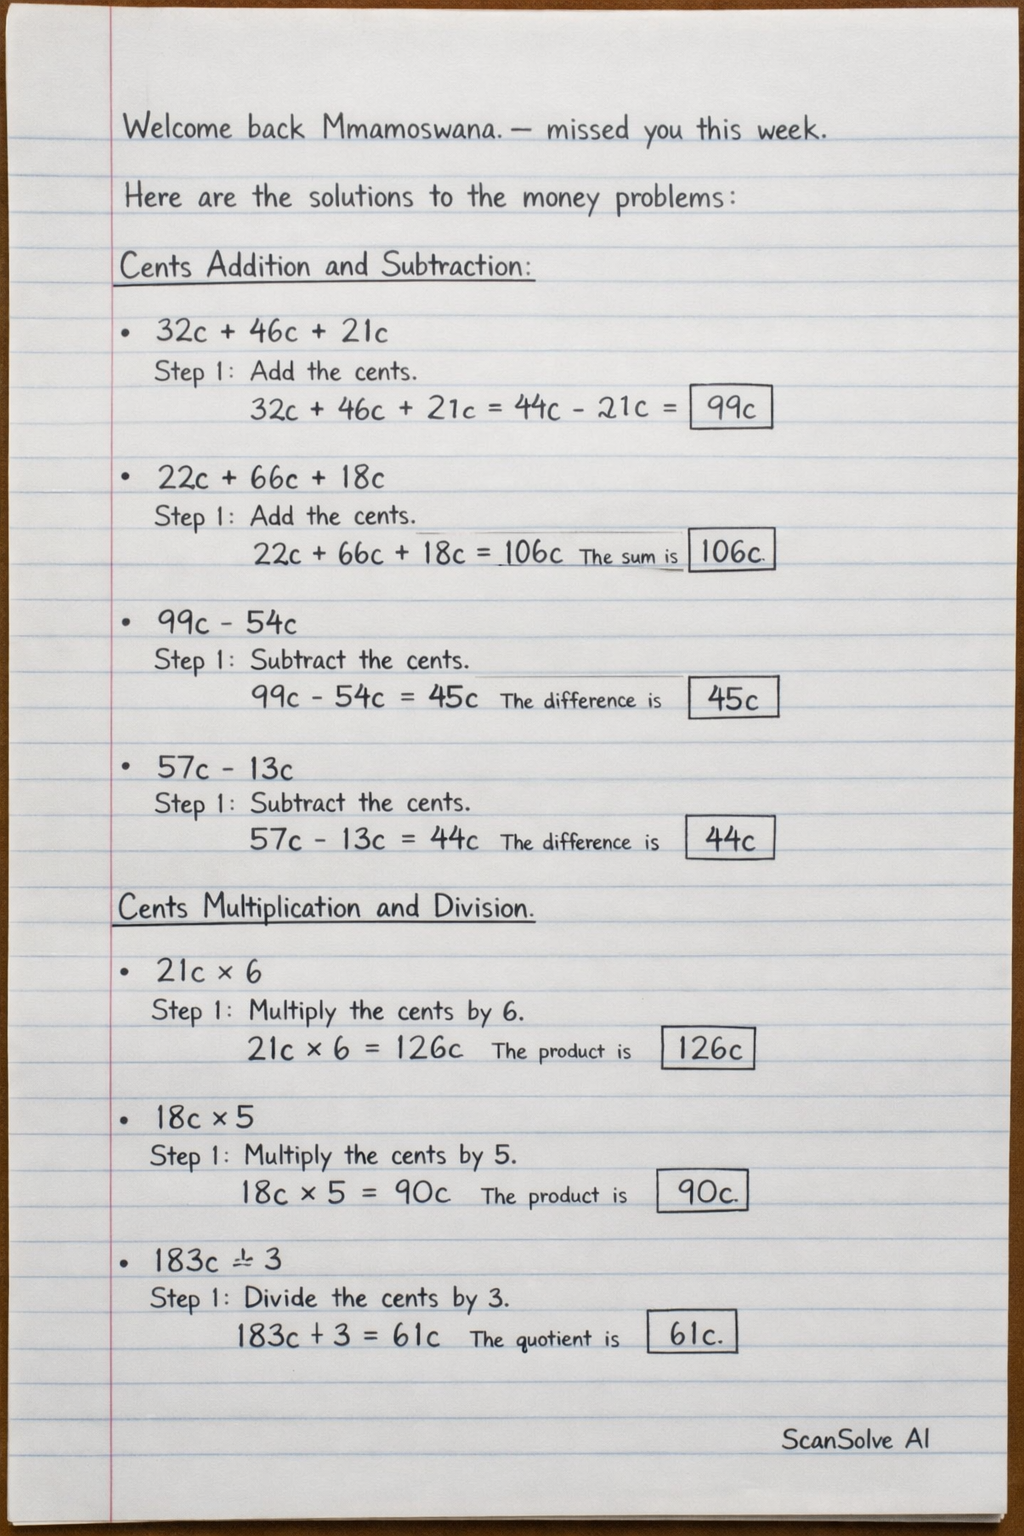 Welcome back Mmamoswana. — missed you this week.
Here are the solutions to the money problems:
Cents Addition and Subtraction:
• 32c + 46c + 21c
Step 1: Add the cents.
32c + 46c + 21c = 44c - 21c = 99c
• 22c + 66c + 18c
Step 1: Add the cents.
22c + 66c + 18c = 106c The sum is 106c.
• 99c - 54c
Step 1: Subtract the cents.
99c - 54c = 45c The difference is 45c
• 57c - 13c
Step 1: Subtract the cents.
57c - 13c = 44c The difference is 44c
Cents Multiplication and Division.
• 21c × 6
Step 1: Multiply the cents by 6.
21c × 6 = 126c The product is 126c
• 18c × 5
Step 1: Multiply the cents by 5.
18c × 5 = 90c The product is 90c.
• 183c ÷ 3
Step 1: Divide the cents by 3.
183c + 3 = 61c The quotient is 61c.
ScanSolve AI